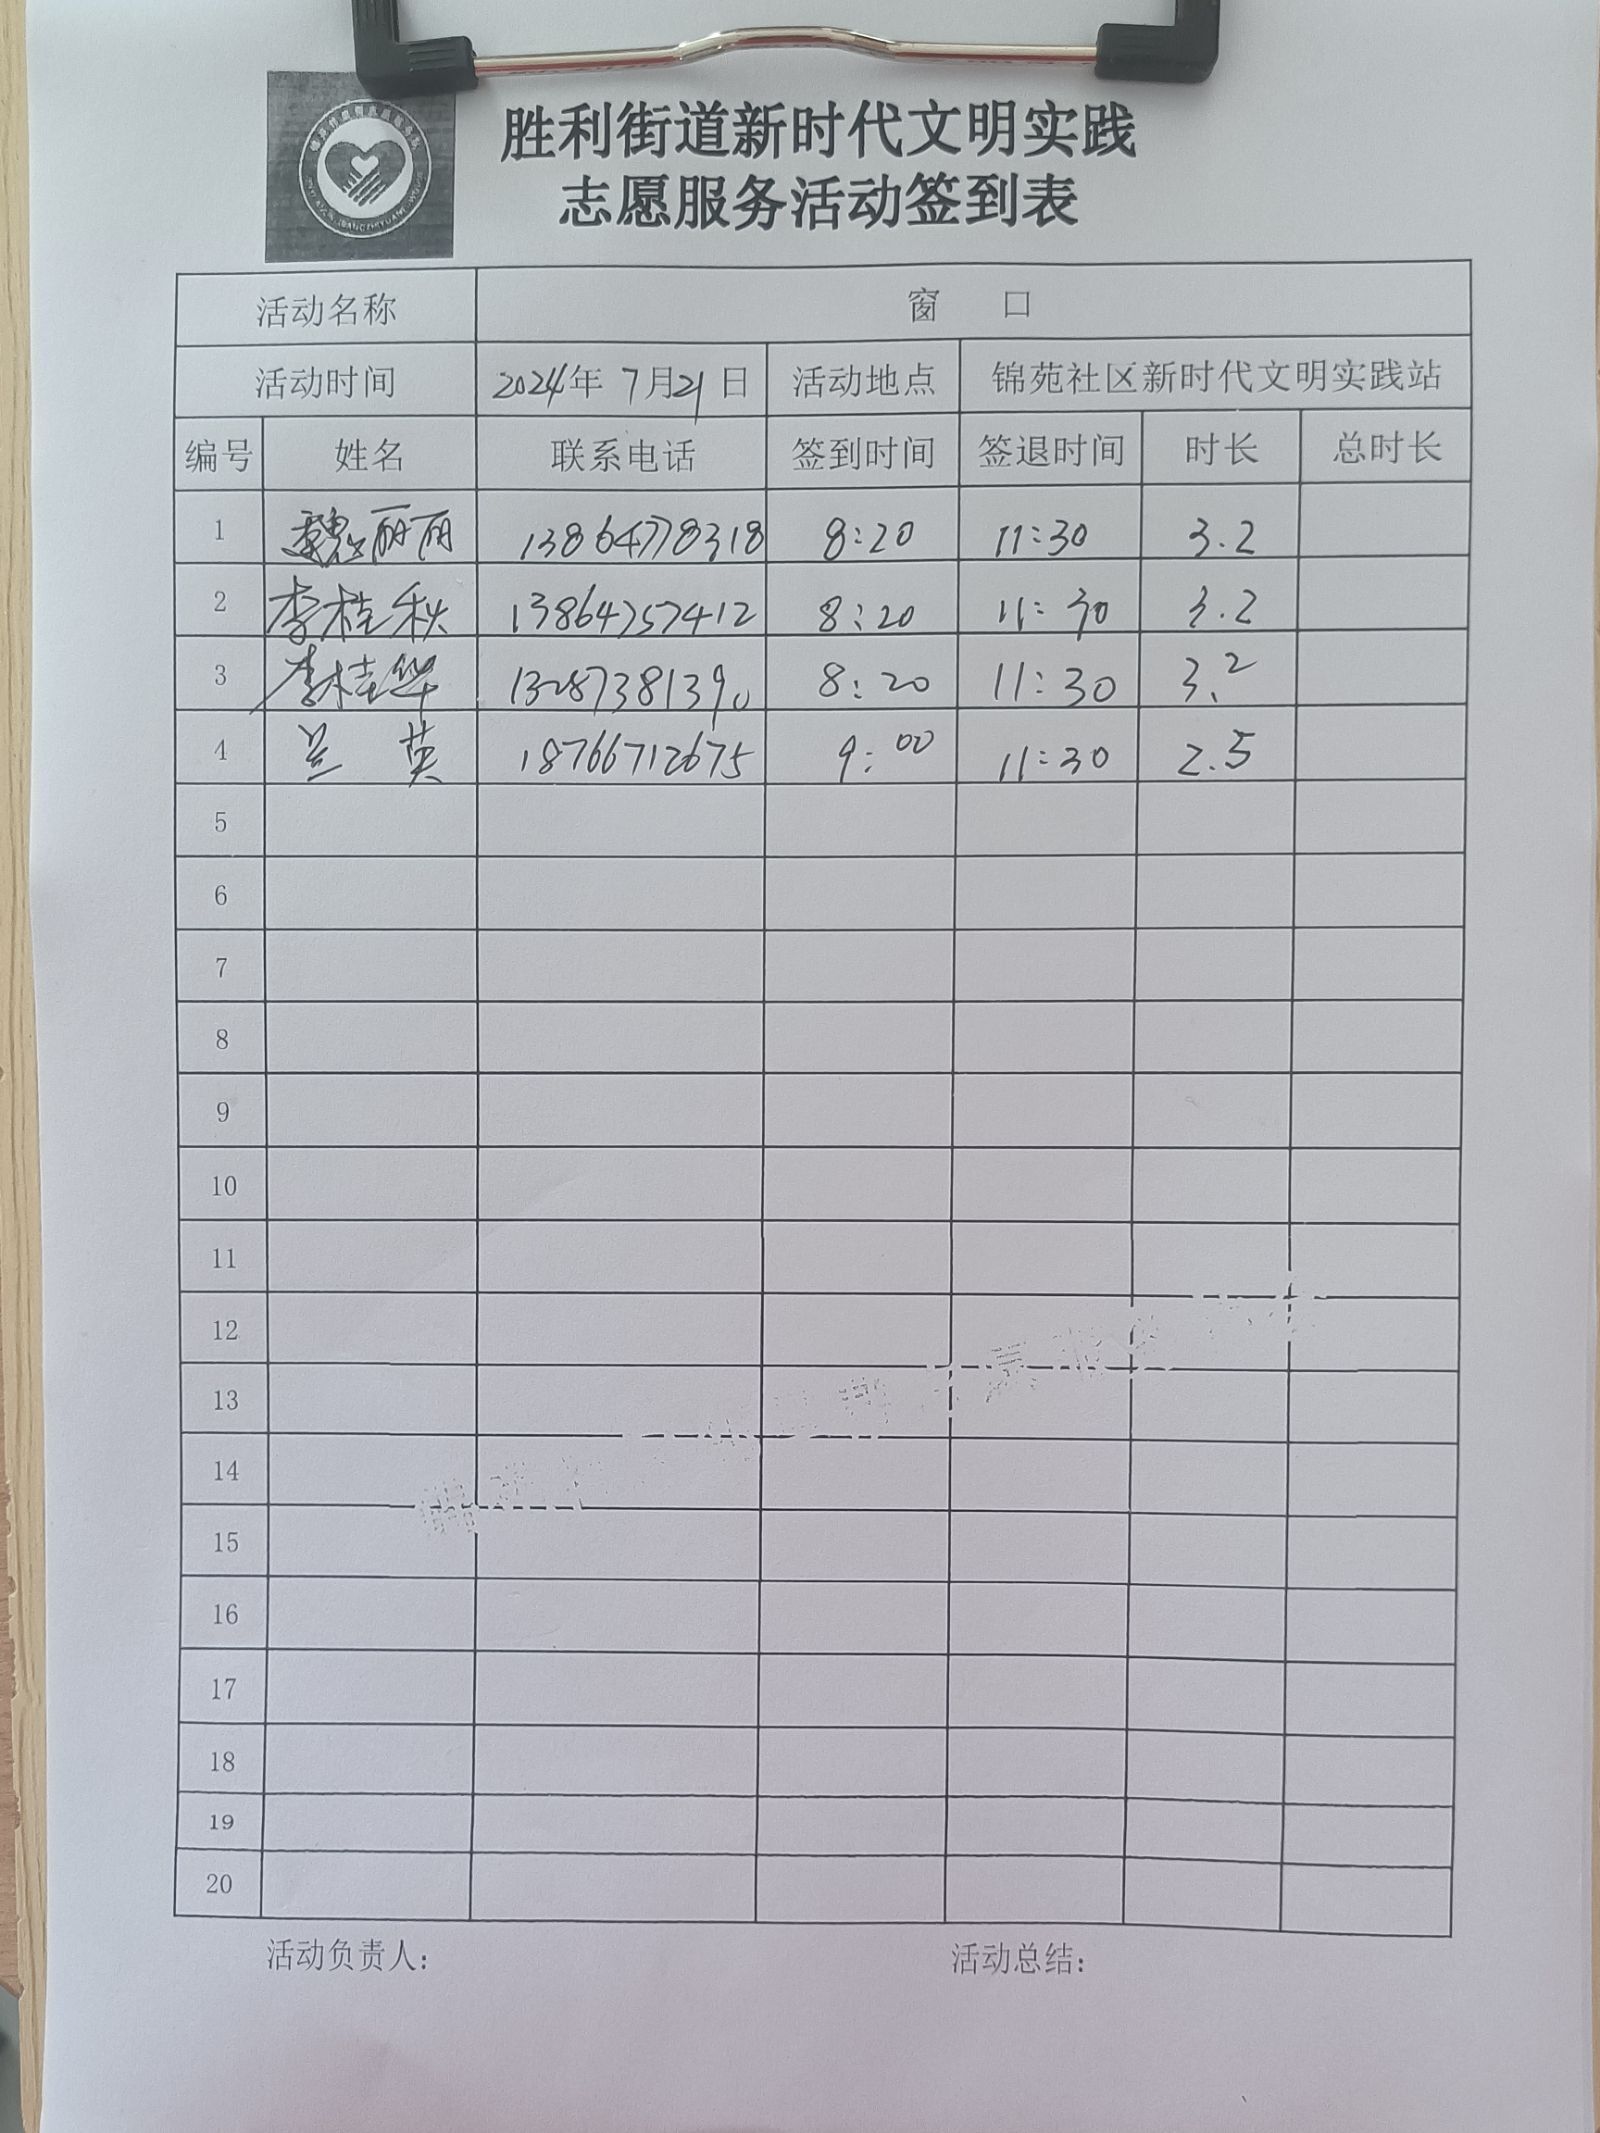 胜利街道新时代文明实践
志愿服务活动签到表
活动名称 窗 口
活动时间 2024年 7月21日 活动地点 锦苑社区新时代文明实践站
编号 姓名 联系电话 签到时间 签退时间 时长 总时长
1 魏丽丽 13864778318 8:20 11:30 3.2
2 李桂秋 13864757412 8:20 11:30 3.2
3 李桂华 13287381390 8:20 11:30 3.2
4 兰 英 18766712675 9:00 11:30 2.5
5
6
7
8
9
10
11
12
13
14
15
16
17
18
19
20
活动负责人: 活动总结: